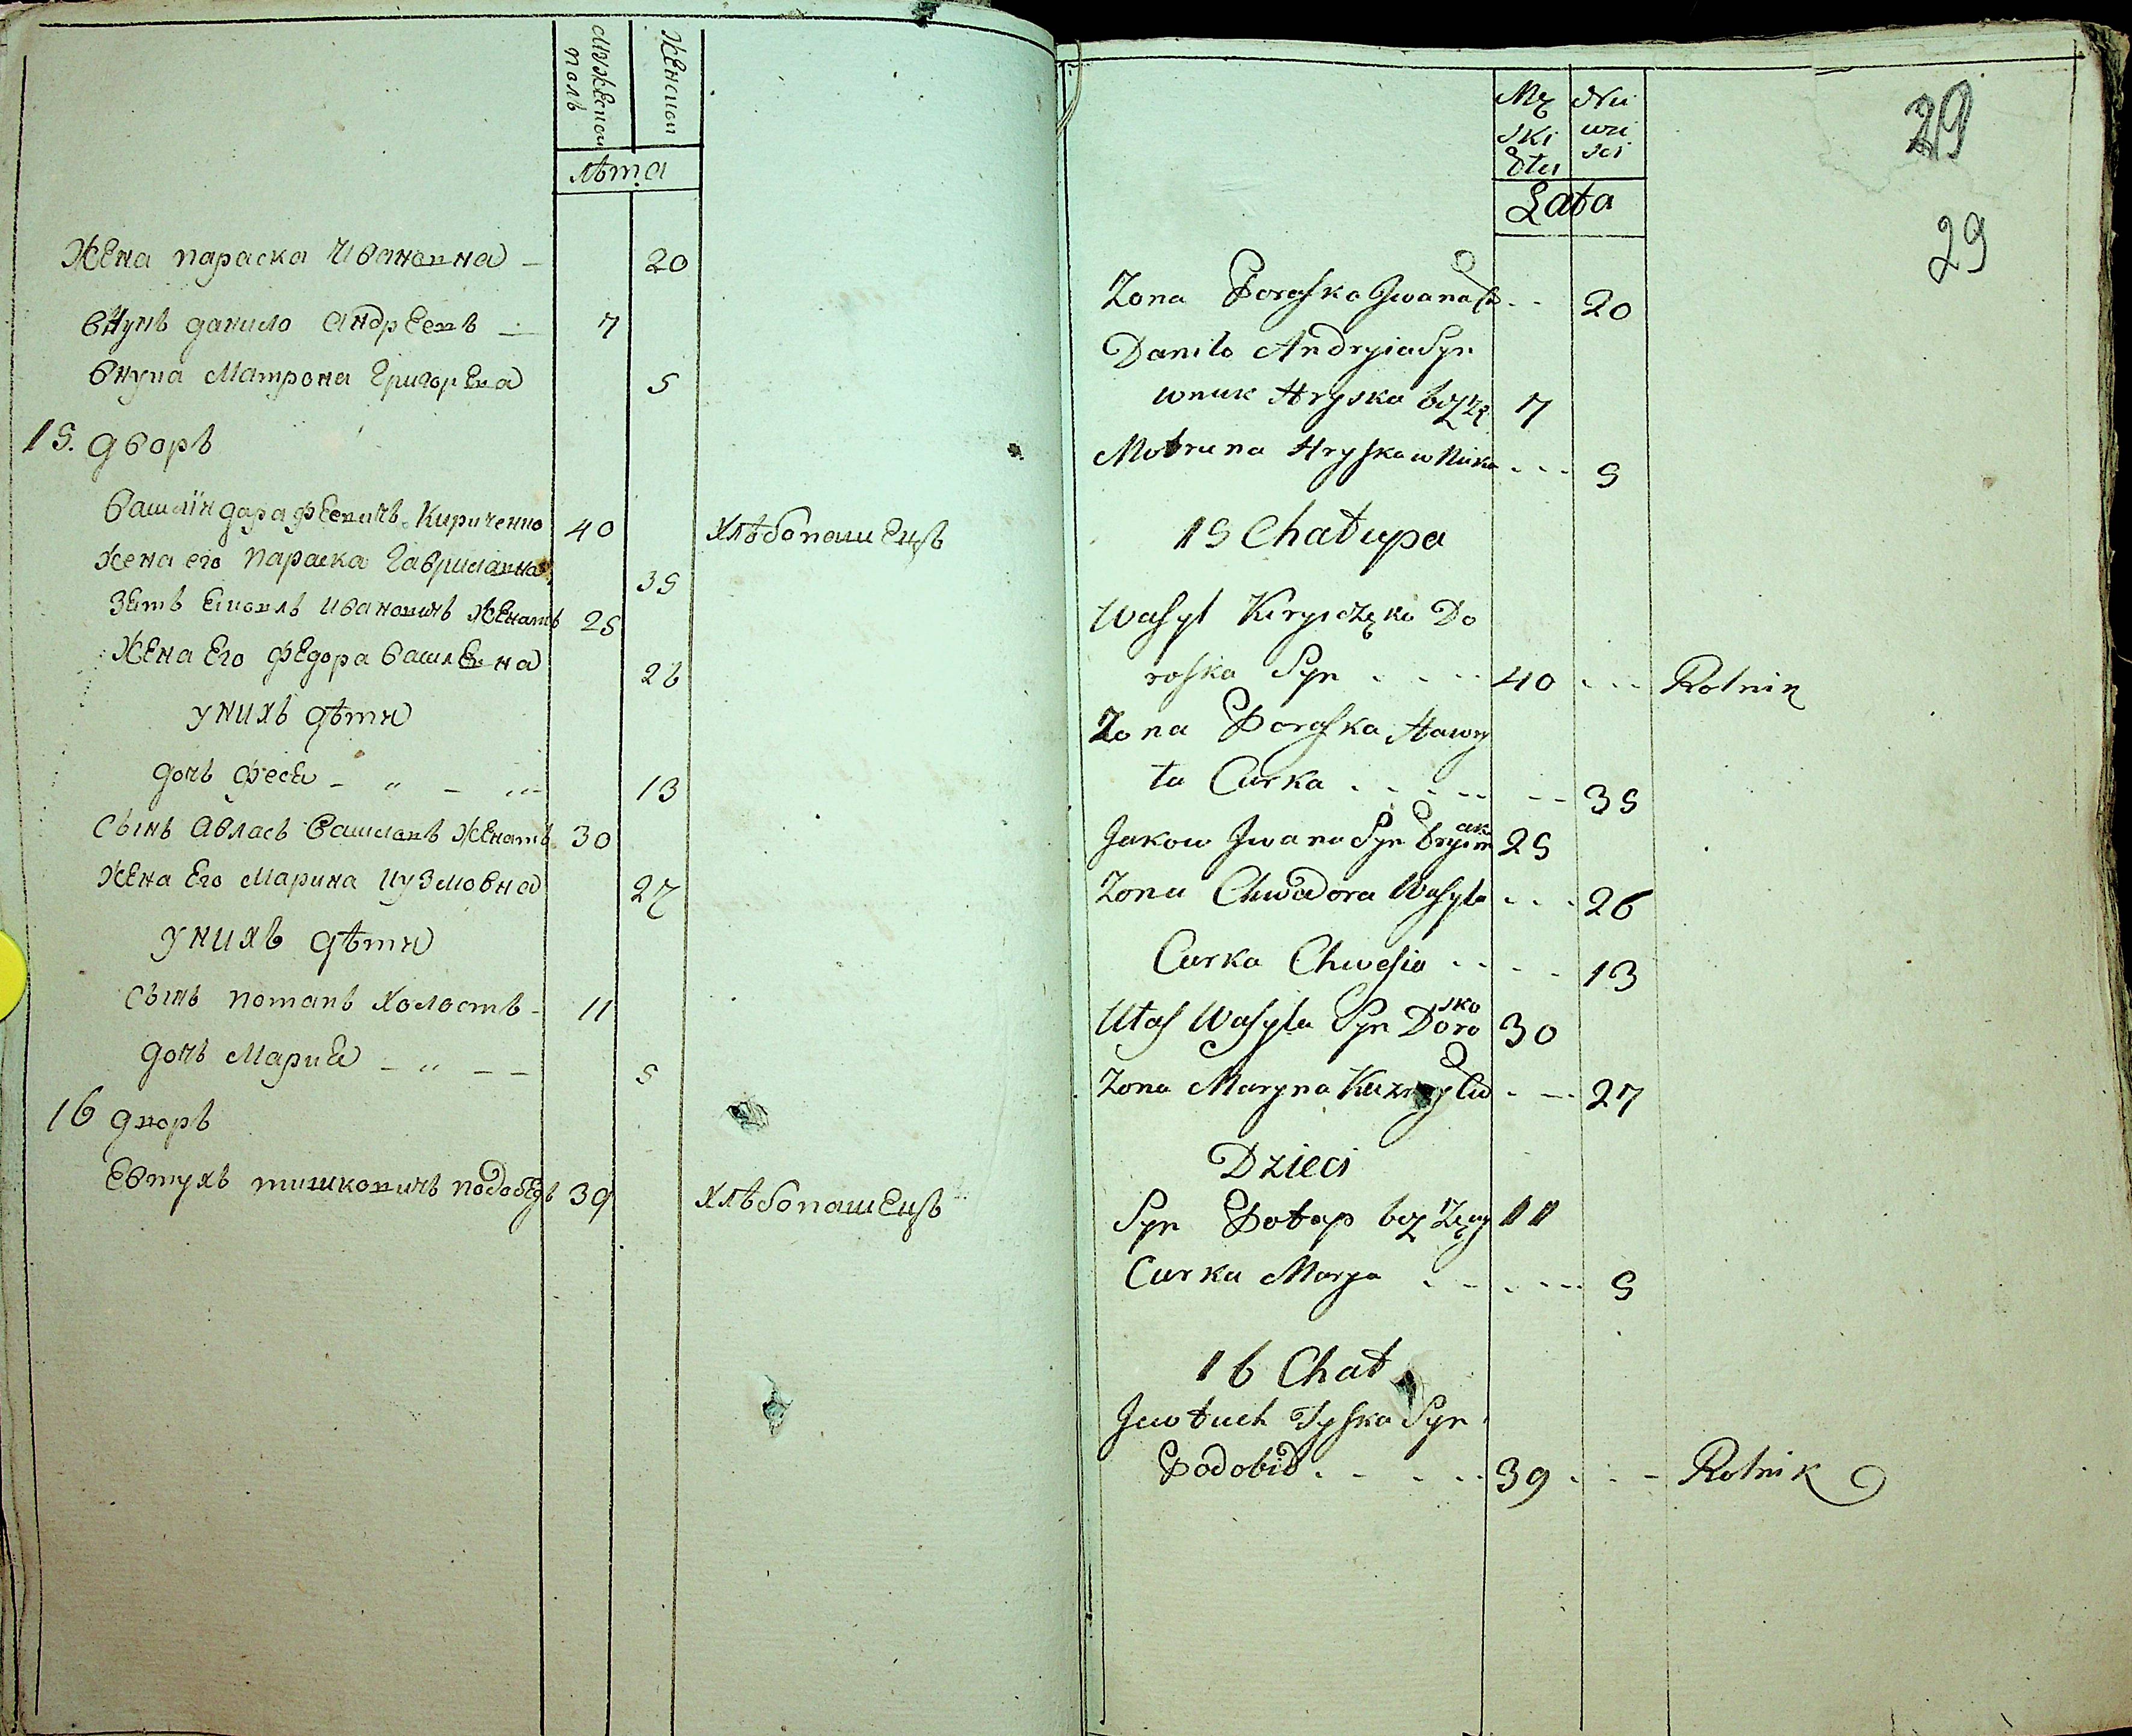 Мужеской
полъ
Женской
лѣта
Жена параска Ивановна - 20
внукъ данило андреевъ - 7
внука Матрона Григорева 5
15. дворъ
Василій дарафеевичъ Кириченко 40 хлѣбопашецъ
жена его параска Гавриловна 35
Зеть Яковль Ивановичъ женатъ 25
Жена Его Федора василевна 26
У нихъ дѣти
дочь Фесея - " - 13
Сынъ Авласъ Василовъ женатъ 30
Жена Его Марина Кузмовна 27
У нихъ дѣти
Сынъ потапъ холостъ - 11
дочь Мария - " - - 5
16 дворъ
Евтухъ тишковичъ подобедъ 39 хлѣбопашецъ
29
Mę Nie
ski wie
sci
Lata
29
Zona Poraska Jwana 20
Danilo Andryia Syn
wnuk Hryska bez 7
Motruna Hryskaw 5
15 Chatupa
Wasyl Kiryiczęko Do
roska Syn . . . . 40 . . . Rolnik
Zona Poraska Hawry
ta Curka . . . . . 35
Jakow Jwana Syn 25
Zona Chwadora Wasyla . . . 26
Curka Chwesia . . . . 13
Utas Wasyla Syn Doro sko 30
Zona Maryna 27
Dzieci
Syn Potap bez Zęny 11
Curka Marya . . . . 5
16 Chat
Jewtuch Tyska Syn
Podobid . . . . . 39 . . - Rolnik